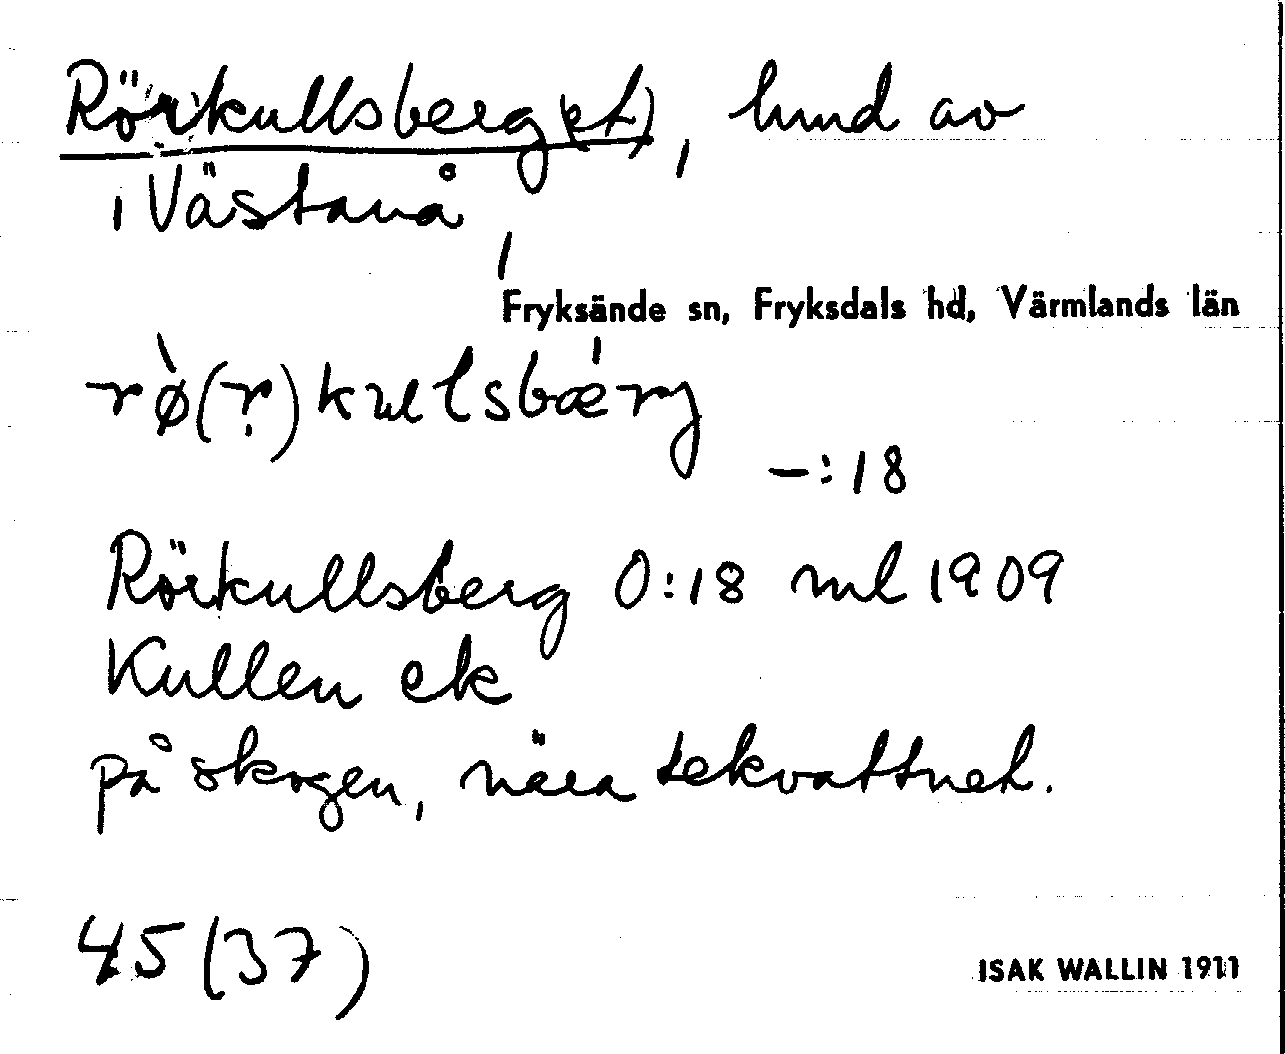 Rörkullsberg(et), hmd av
i Västanå,
Fryksände sn, Fryksdals hd, Värmlands län
rø̀(r)kullsbærj
–:18
Rörkullsberg 0:18 ml 1909
Kullen ek
på skogen, nära tekvattnet.
45 (37)
ISAK WALLIN 1911